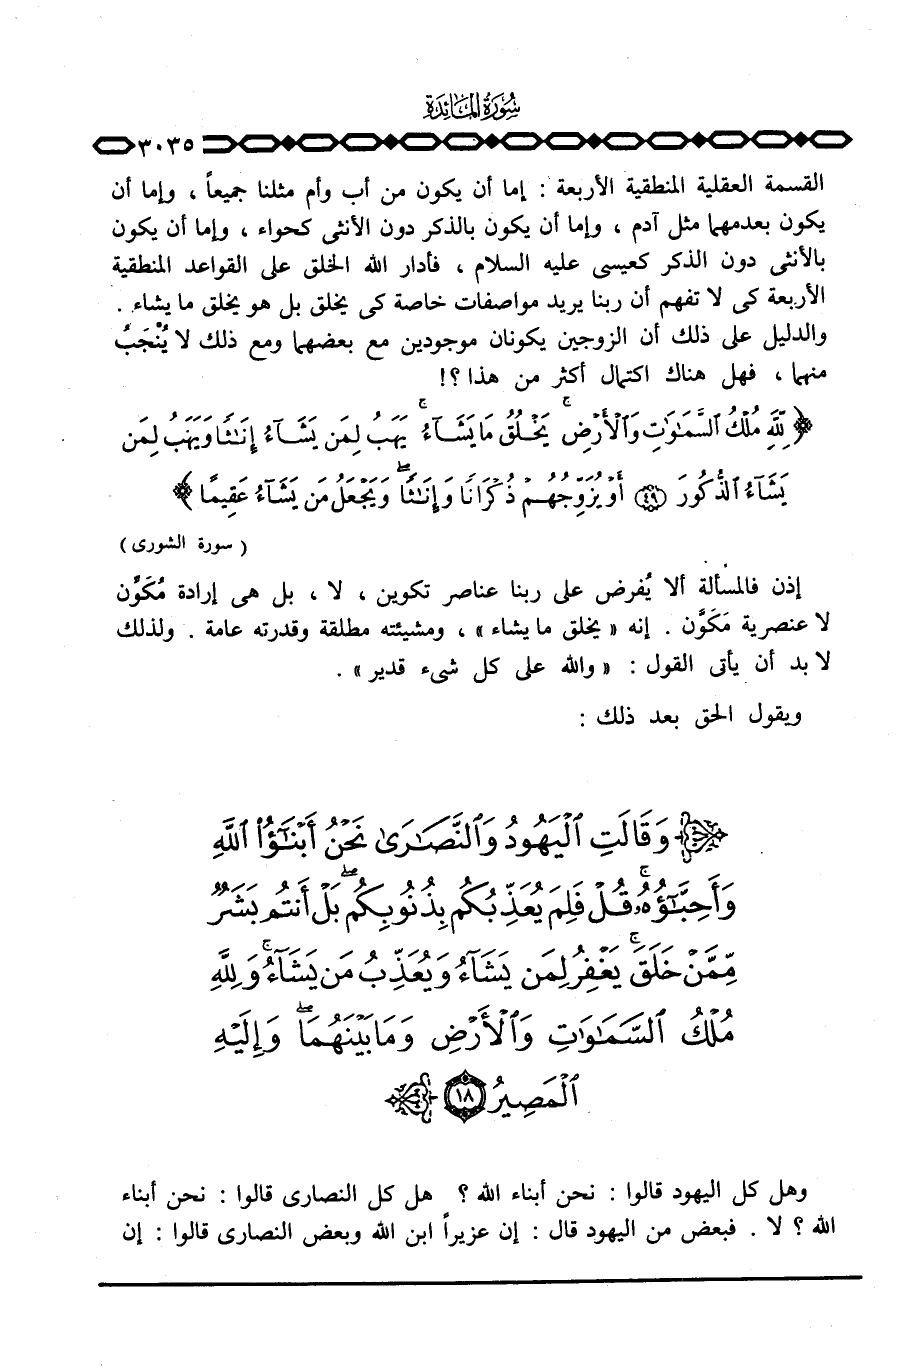 سُورَةُ المَائِدَة
٣٠٣٥
القسمة العقلية المنطقية الأربعة : إما أن يكون من أب وأم مثلنا جميعاً ، وإما أن
يكون بعدمهما مثل آدم ، وإما أن يكون بالذكر دون الأنثى كحواء ، وإما أن يكون
بالأنثى دون الذكر كعيسى عليه السلام ، فأدار الله الخلق على القواعد المنطقية
الأربعة كى لا تفهم أن ربنا يريد مواصفات خاصة كى يخلق بل هو يخلق ما يشاء .
والدليل على ذلك أن الزوجين يكونان موجودين مع بعضهما ومع ذلك لا يُنْجَبُ
منهما ، فهل هناك اكتمال أكثر من هذا ؟!
﴿ لِّلَّهِ مُلْكُ ٱلسَّمَـٰوَٰتِ وَٱلْأَرْضِ ۚ يَخْلُقُ مَا يَشَآءُ ۚ يَهَبُ لِمَن يَشَآءُ إِنَـٰثًا وَيَهَبُ لِمَن
يَشَآءُ ٱلذُّكُورَ ﴿٤٩﴾ أَوْ يُزَوِّجُهُمْ ذُكْرَانًا وَإِنَـٰثًا ۖ وَيَجْعَلُ مَن يَشَآءُ عَقِيمًا ﴾
( سورة الشورى )
إذن فالمسألة ألا يُفرض على ربنا عناصر تكوين ، لا ، بل هى إرادة مُكَوِّن
لا عنصرية مَكَوَّن . إنه « يخلق ما يشاء » ، ومشيئته مطلقة وقدرته عامة . ولذلك
لا بد أن يأتى القول : « والله على كل شىء قدير » .
ويقول الحق بعد ذلك :
﴿ وَقَالَتِ ٱلْيَهُودُ وَٱلنَّصَـٰرَىٰ نَحْنُ أَبْنَـٰٓؤُا۟ ٱللَّهِ
وَأَحِبَّـٰٓؤُهُۥ ۚ قُلْ فَلِمَ يُعَذِّبُكُم بِذُنُوبِكُم ۖ بَلْ أَنتُم بَشَرٌ
مِّمَّنْ خَلَقَ ۚ يَغْفِرُ لِمَن يَشَآءُ وَيُعَذِّبُ مَن يَشَآءُ ۚ وَلِلَّهِ
مُلْكُ ٱلسَّمَـٰوَٰتِ وَٱلْأَرْضِ وَمَا بَيْنَهُمَا ۖ وَإِلَيْهِ
ٱلْمَصِيرُ ﴿١٨﴾ ﴾
وهل كل اليهود قالوا : نحن أبناء الله ؟ هل كل النصارى قالوا : نحن أبناء
الله ؟ لا . فبعض من اليهود قال : إن عزيراً ابن الله وبعض النصارى قالوا : إن